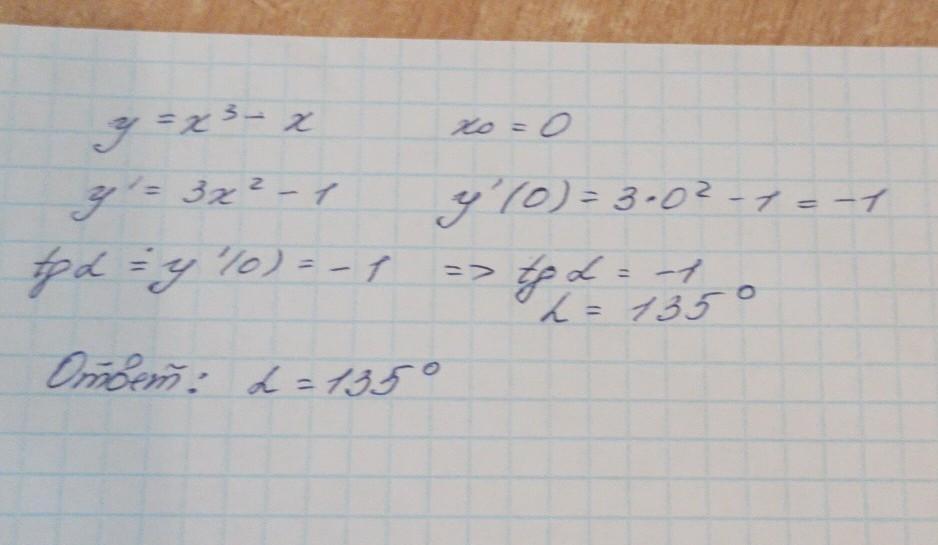 y = x³ - x x₀ = 0
y' = 3x² - 1 y'(0) = 3·0² - 1 = -1
tg α = y'(0) = -1 => tg α = -1
α = 135°
Ответ: α = 135°